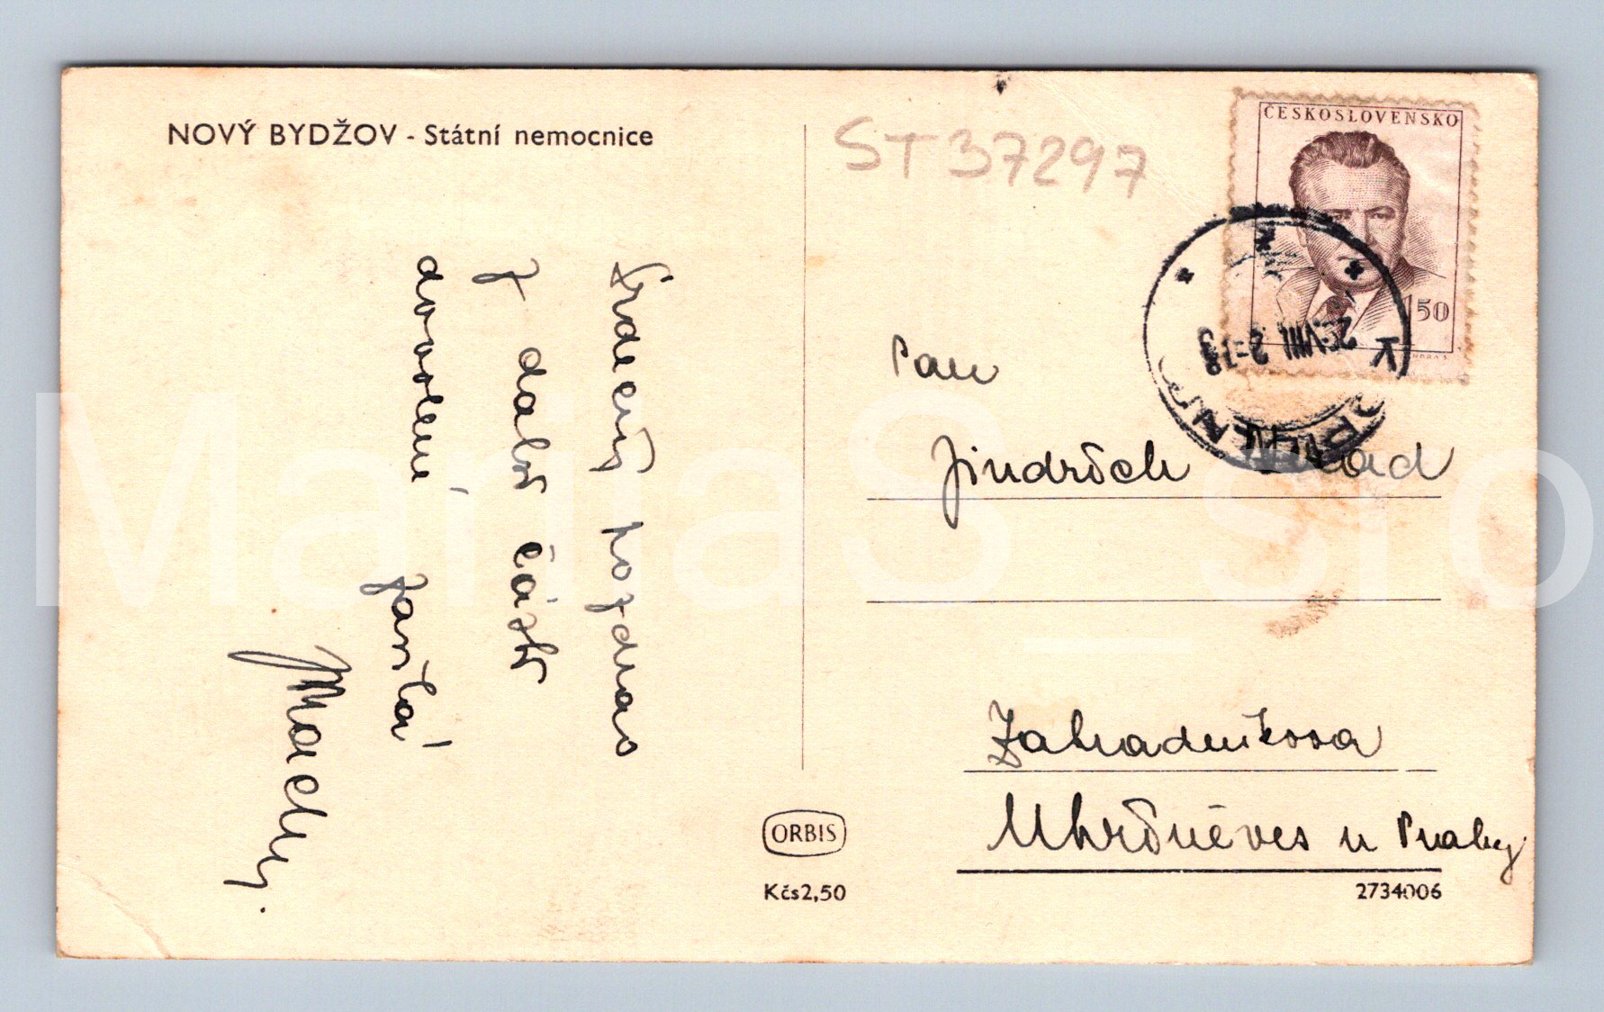 NOVÝ BYDŽOV - Státní nemocnice
ST 37297
ČESKOSLOVENSKO
1 50
Srdečný pozdrav
z další části
dovolené zasílá
Pan
Jindřich
Zahradníkova
Uhříněves u Prahy
ORBIS
Kčs 2,50
2734006